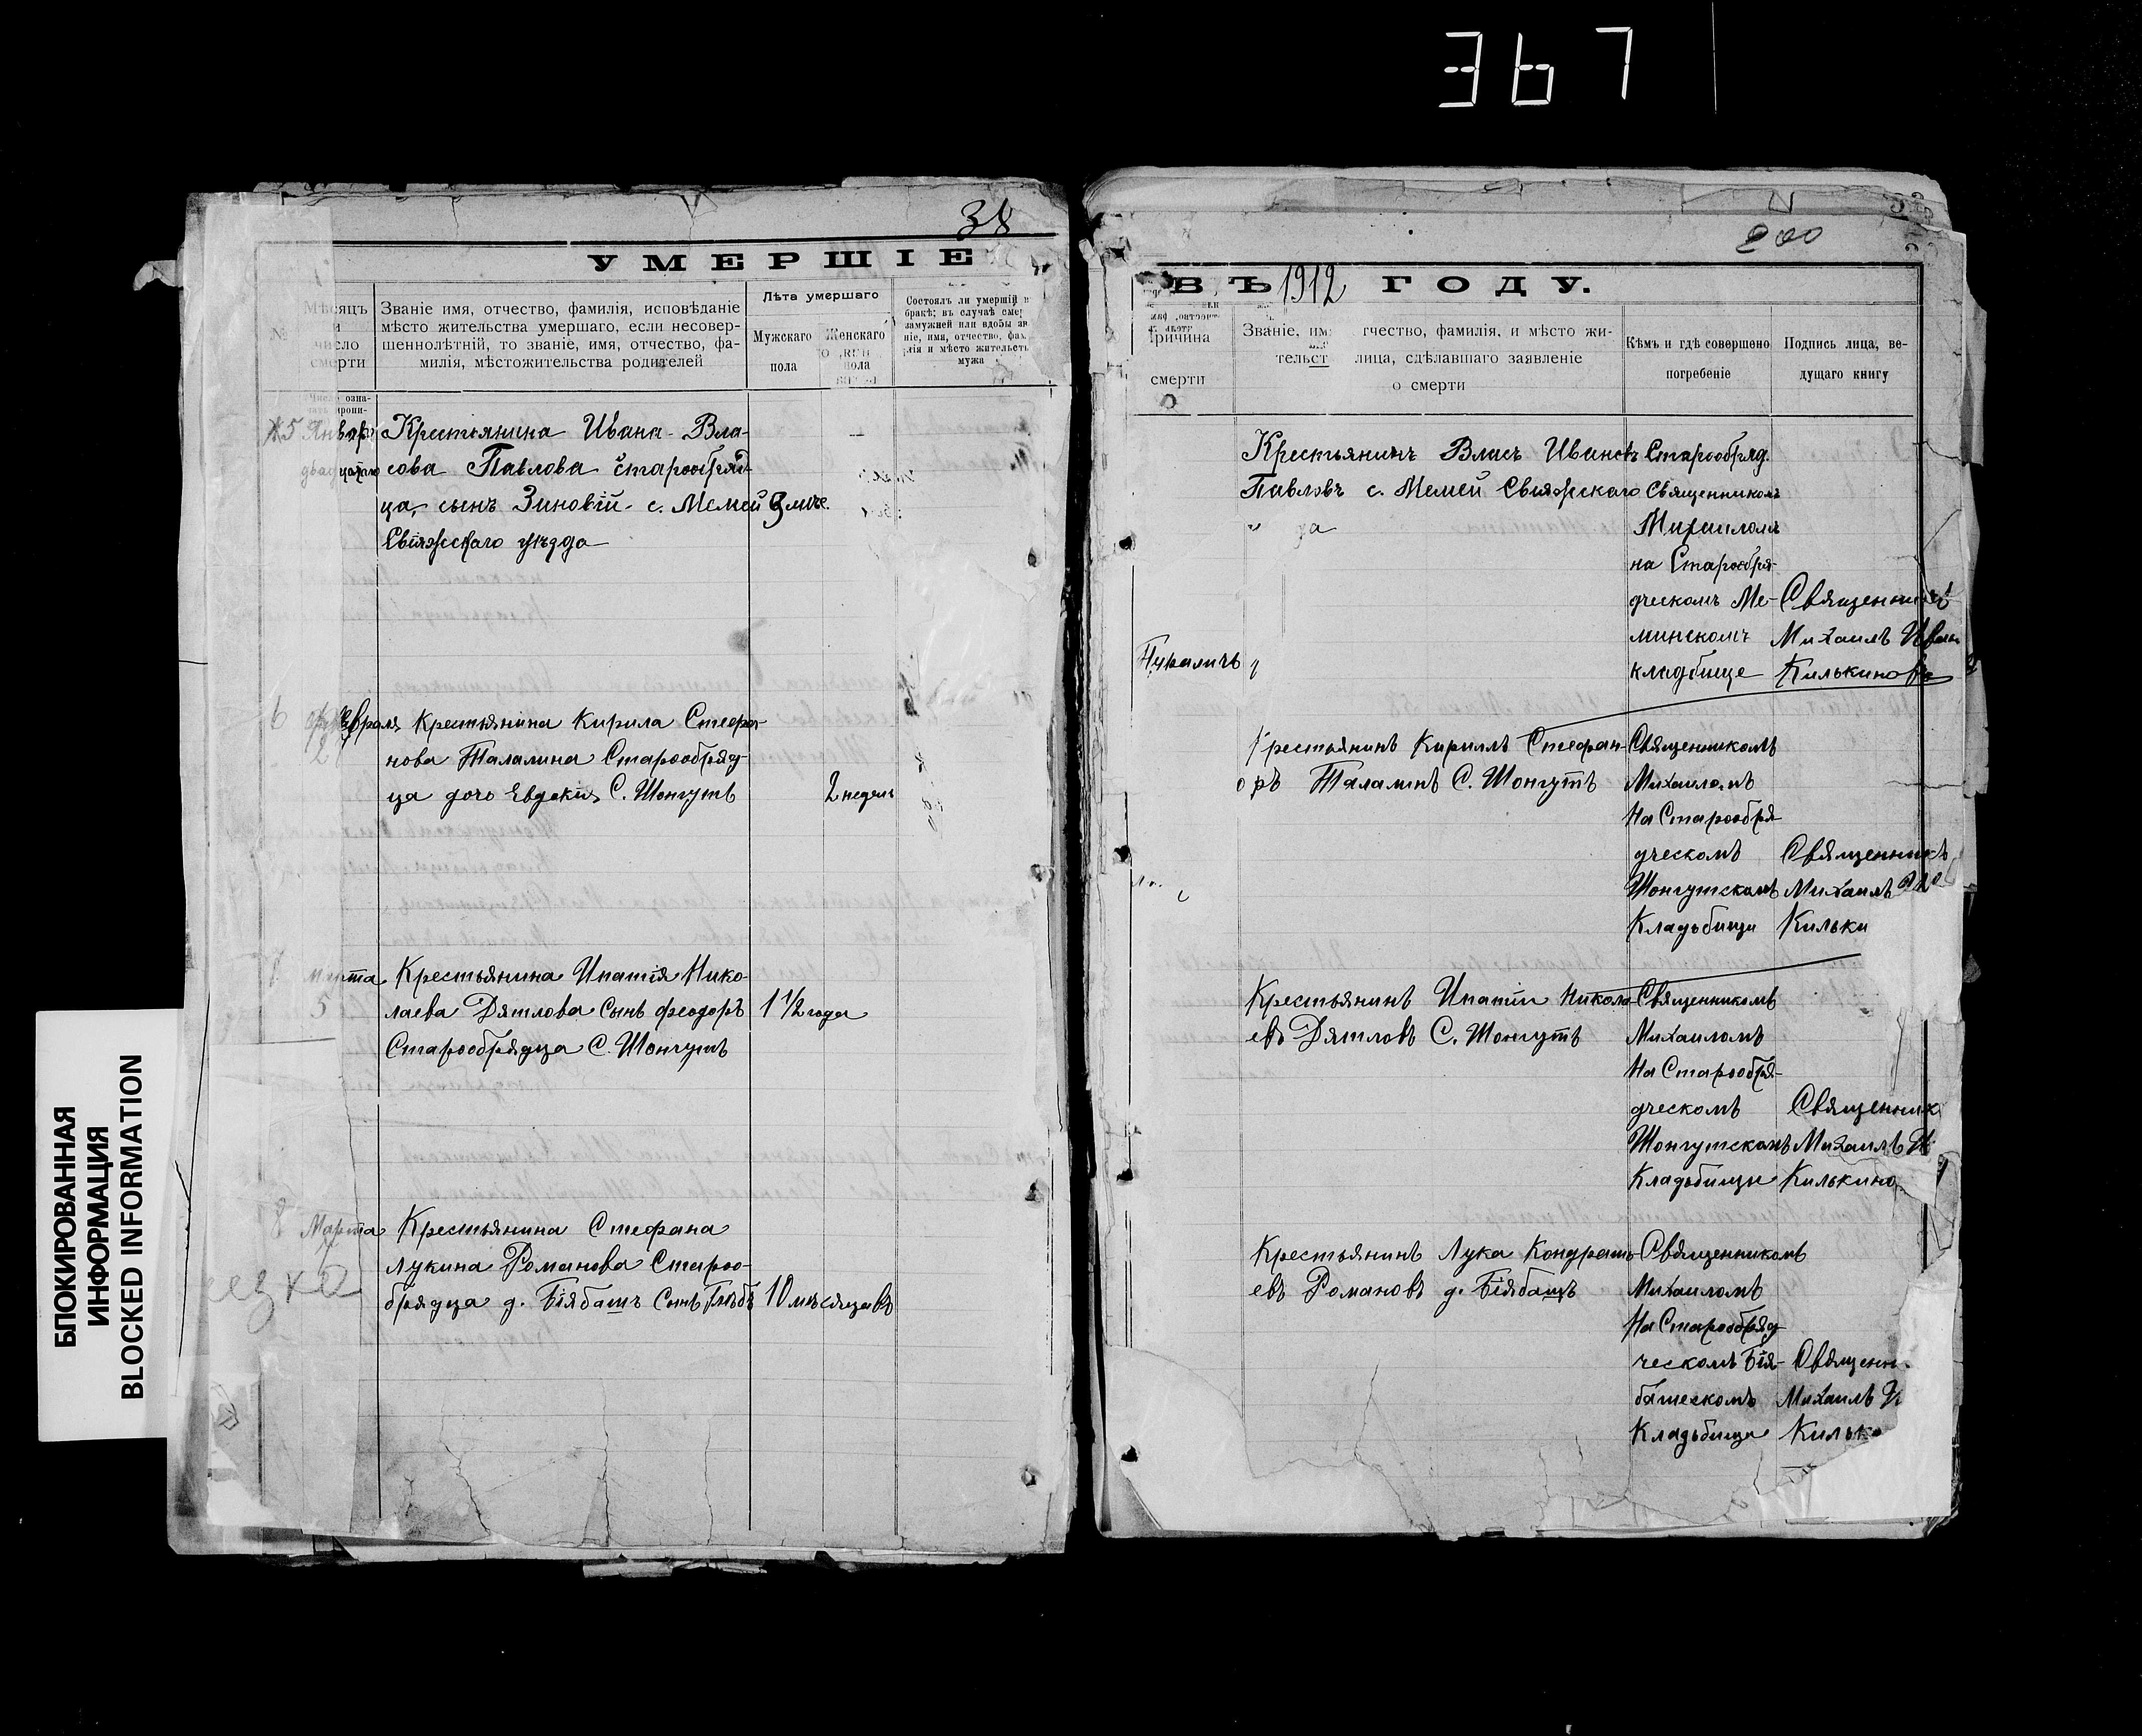 367
БЛОКИРОВАННАЯ
ИНФОРМАЦИЯ
BLOCKED INFORMATION
38
УМЕРШІЕ
№
Мѣсяцъ
и
число
смерти
Званіе имя, отчество, фамилія, исповѣданіе
мѣсто жительства умершаго, если несовер-
шеннолѣтній, то званіе, имя, отчество, фа-
милія, мѣстожительства родителей
Лѣта умершаго
Мужскаго
пола
Женскаго
пола
Состоялъ ли умершій
бракѣ; въ случаѣ
замужней или вдовы
ніе, имя, отчество,
и мѣсто
мужа
5 Январ
Крестьянина Ивана Вла-
сова Павлова старообряд-
ца, сынъ Зиновій с. Мемей
Свіяжскаго уѣзда
6 Февраля
2
Крестьянина Кирила Стефа-
нова Талалина Старообряд-
ца дочь Евдокія С. Шонгутъ
2 недели
7 марта
5
Крестьянина Ипатія Нико-
лаева Дятлова Сынъ Феодоръ
1 1/2 года
Старообрядца С. Шонгутъ
8 Марта
Крестьянина Стефана
Лукина Романова Старо-
обрядца д. Біябашъ Сынъ Глѣбъ
10 мѣсяцевъ
200
ВЪ 1912 ГОДУ.
Причина
смерти
Званіе, имя отчество, фамилія, и мѣсто жи-
тельст лица, сдѣлавшаго заявленіе
о смерти
Кѣмъ и гдѣ совершено
погребеніе
Подпись лица, ве-
дущаго книгу
Крестьянинъ Власъ Ивановъ
Павловъ с. Мемей Свіяжскаго
Старообряд.
Священникомъ
Михаиломъ
на Старообря-
дческомъ Ме-
минскомъ
кладбище
Священникъ
Михаилъ Иван
Килькиновъ
Крестьянинъ Кириллъ Стефан-
Талалинъ С. Шонгутъ
Священникомъ
Михаиломъ
На Старообря-
дческомъ
Шонгутскомъ
Кладьбищи
Священникъ
Михаилъ
Кильки
Крестьянинъ Ипатій Никола-
евъ Дятловъ С. Шонгутъ
Священникомъ
Михаиломъ
На Старообря-
дческомъ
Шонгутскомъ
Кладьбищи
Священник
Михаилъ И
Килькино
Крестьянинъ Лука Кондрать-
евъ Романовъ д. Біябашъ
Священникомъ
Михаиломъ
На Старообряд-
ческомъ Бія-
башскомъ
Кладьбище
Священн
Михаилъ И
Кильк